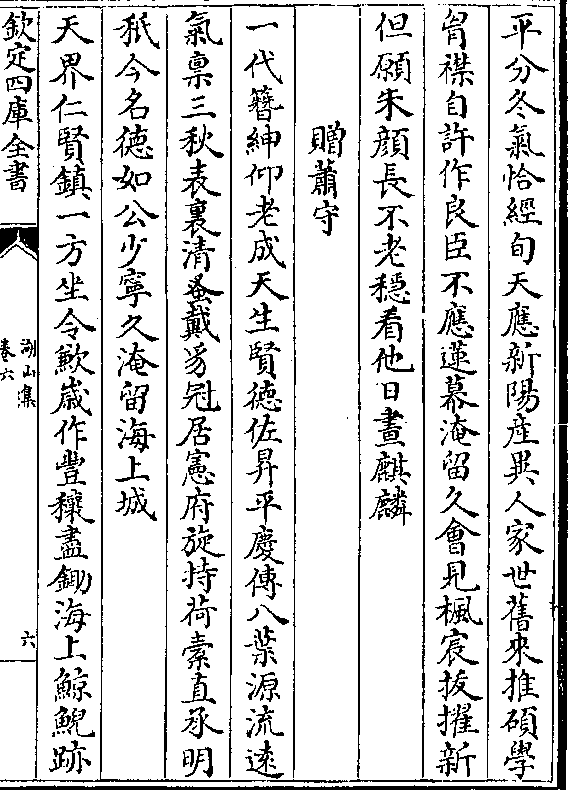 平分冬氣恰經旬天應新陽産異人家世舊來推碩學
胷襟自許作良臣不應蓮幕淹留久會見楓宸拔擢新
但願朱顔長不老穏看他日畫麒麟
贈蕭守
一代簪紳仰老成天生賢德佐昇平慶傳八葉源流逺
氣禀三秋表裏清蚤戴豸冠居憲府旋持荷橐直承明
秖今名德如公少寧久淹留海上城
天界仁賢鎮一方坐令歉嵗作豐穰盡鋤海上鯨鯢跡
欽定四庫全書
湖山集
卷六
六